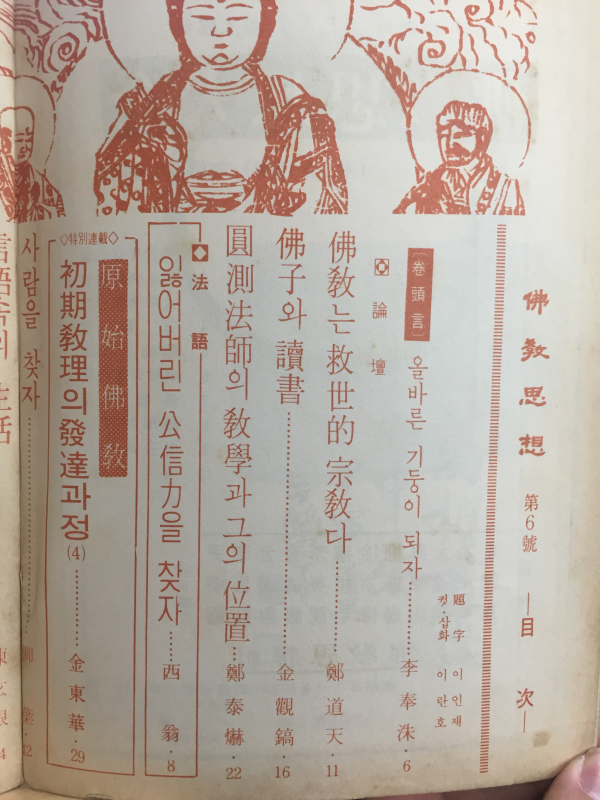 佛敎思想 第6號 ―目 次―
題字 이인재
컷·삽화 이란호
〔卷頭言〕 올바른 기둥이 되자…………李奉洙·6
論壇
佛敎는 救世的 宗敎다…………鄭道天·11
佛子와 讀書…………金觀鎬·16
圓測法師의 敎學과 그의 位置…鄭泰爀·22
◆法語
잃어버린 公信力을 찾자……西翁·8
◇特別連載◇
原始佛敎
初期敎理의 發達과정(4)…………金東華·29
사람을 찾자…………